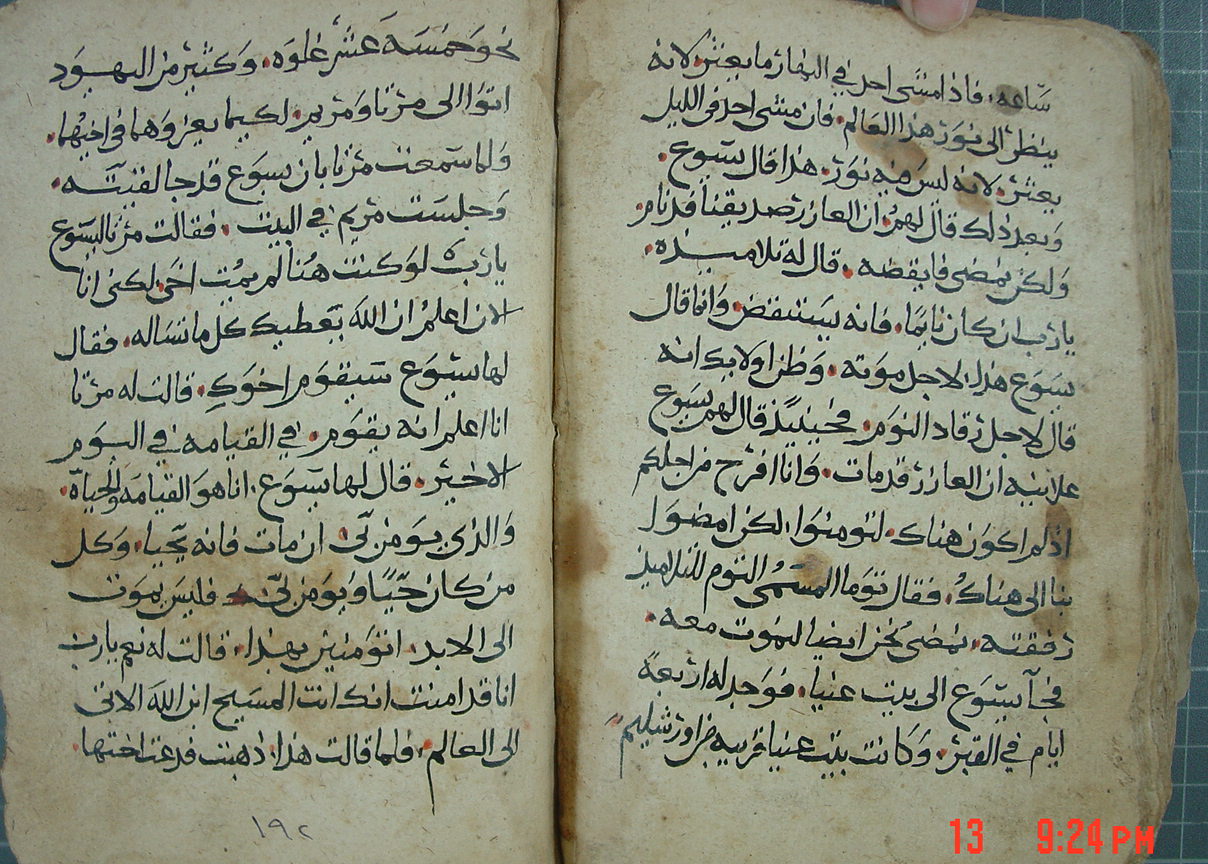 ساعه، فاذا مشى احد في النهار ما يعثر، لانه
ينظر الى نور هذا العالم، فان مشى احد في الليل
يعثر، لانه ليس فيه نور، هذا قال يسوع،
وبعد ذلك قال لهم، ان العازر صديقنا قد نام،
ولكن نمضي فايقضه، قال له تلاميذه،
يا رب ان كان نايما، فانه سيتنقض، وانما قال
يسوع هذا، لاجل موته، وظن اولايك انه
قال لاجل رقاد النوم، فحينيذ قال لهم يسوع
علانيه ان العازر قد مات، وانا افرح من اجلكم
اذ لم اكون هناك، لتومنوا، لكن امضوا
بنا الى هناك، فقال توما المسمى التوم للتلاميذ
رفقته، نمضي نحن ايضا لنموت معه،
فجآ يسوع الى بيت عنيا، فوجد له اربعة
ايام في القبر، وكانت بيت عنيا قريبه من اورشليم
نحو خمسة عشر غلوه، وكثير من اليهود
اتوا الى مرتا ومريم، لكيما يعزوهما في اخيهما،
ولما سمعت مرتا بان يسوع قد جا لقيته،
وجلست مريم في البيت، فقالت مرتا ليسوع
يا رب لو كنت هنا لم يمت اخي، لكني انا
الان اعلم ان الله يعطيك كل ما تساله، فقال
لها يسوع سيقوم اخوك، قالت له مرتا
انا اعلم انه يقوم، في القيامه في اليوم
الاخير، قال لها يسوع، انا هو القيامه والحياة،
والذي يومن بي، ان مات فانه يحيا، وكل
من كان حيا ويومن بي فليس يموت
الى الابد، اتومنين بهذا، قالت له نعم يا رب
انا قد امنت انك انت المسيح ابن الله الاتي
الى العالم، فلما قالت هذا، ذهبت فدعت اختها،
١٩٢
13 9:24 PM